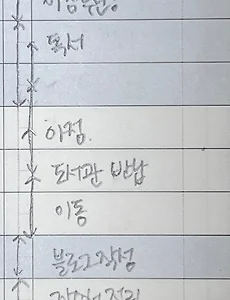 독서
이정.
도서관 반납
이동
블로그작성